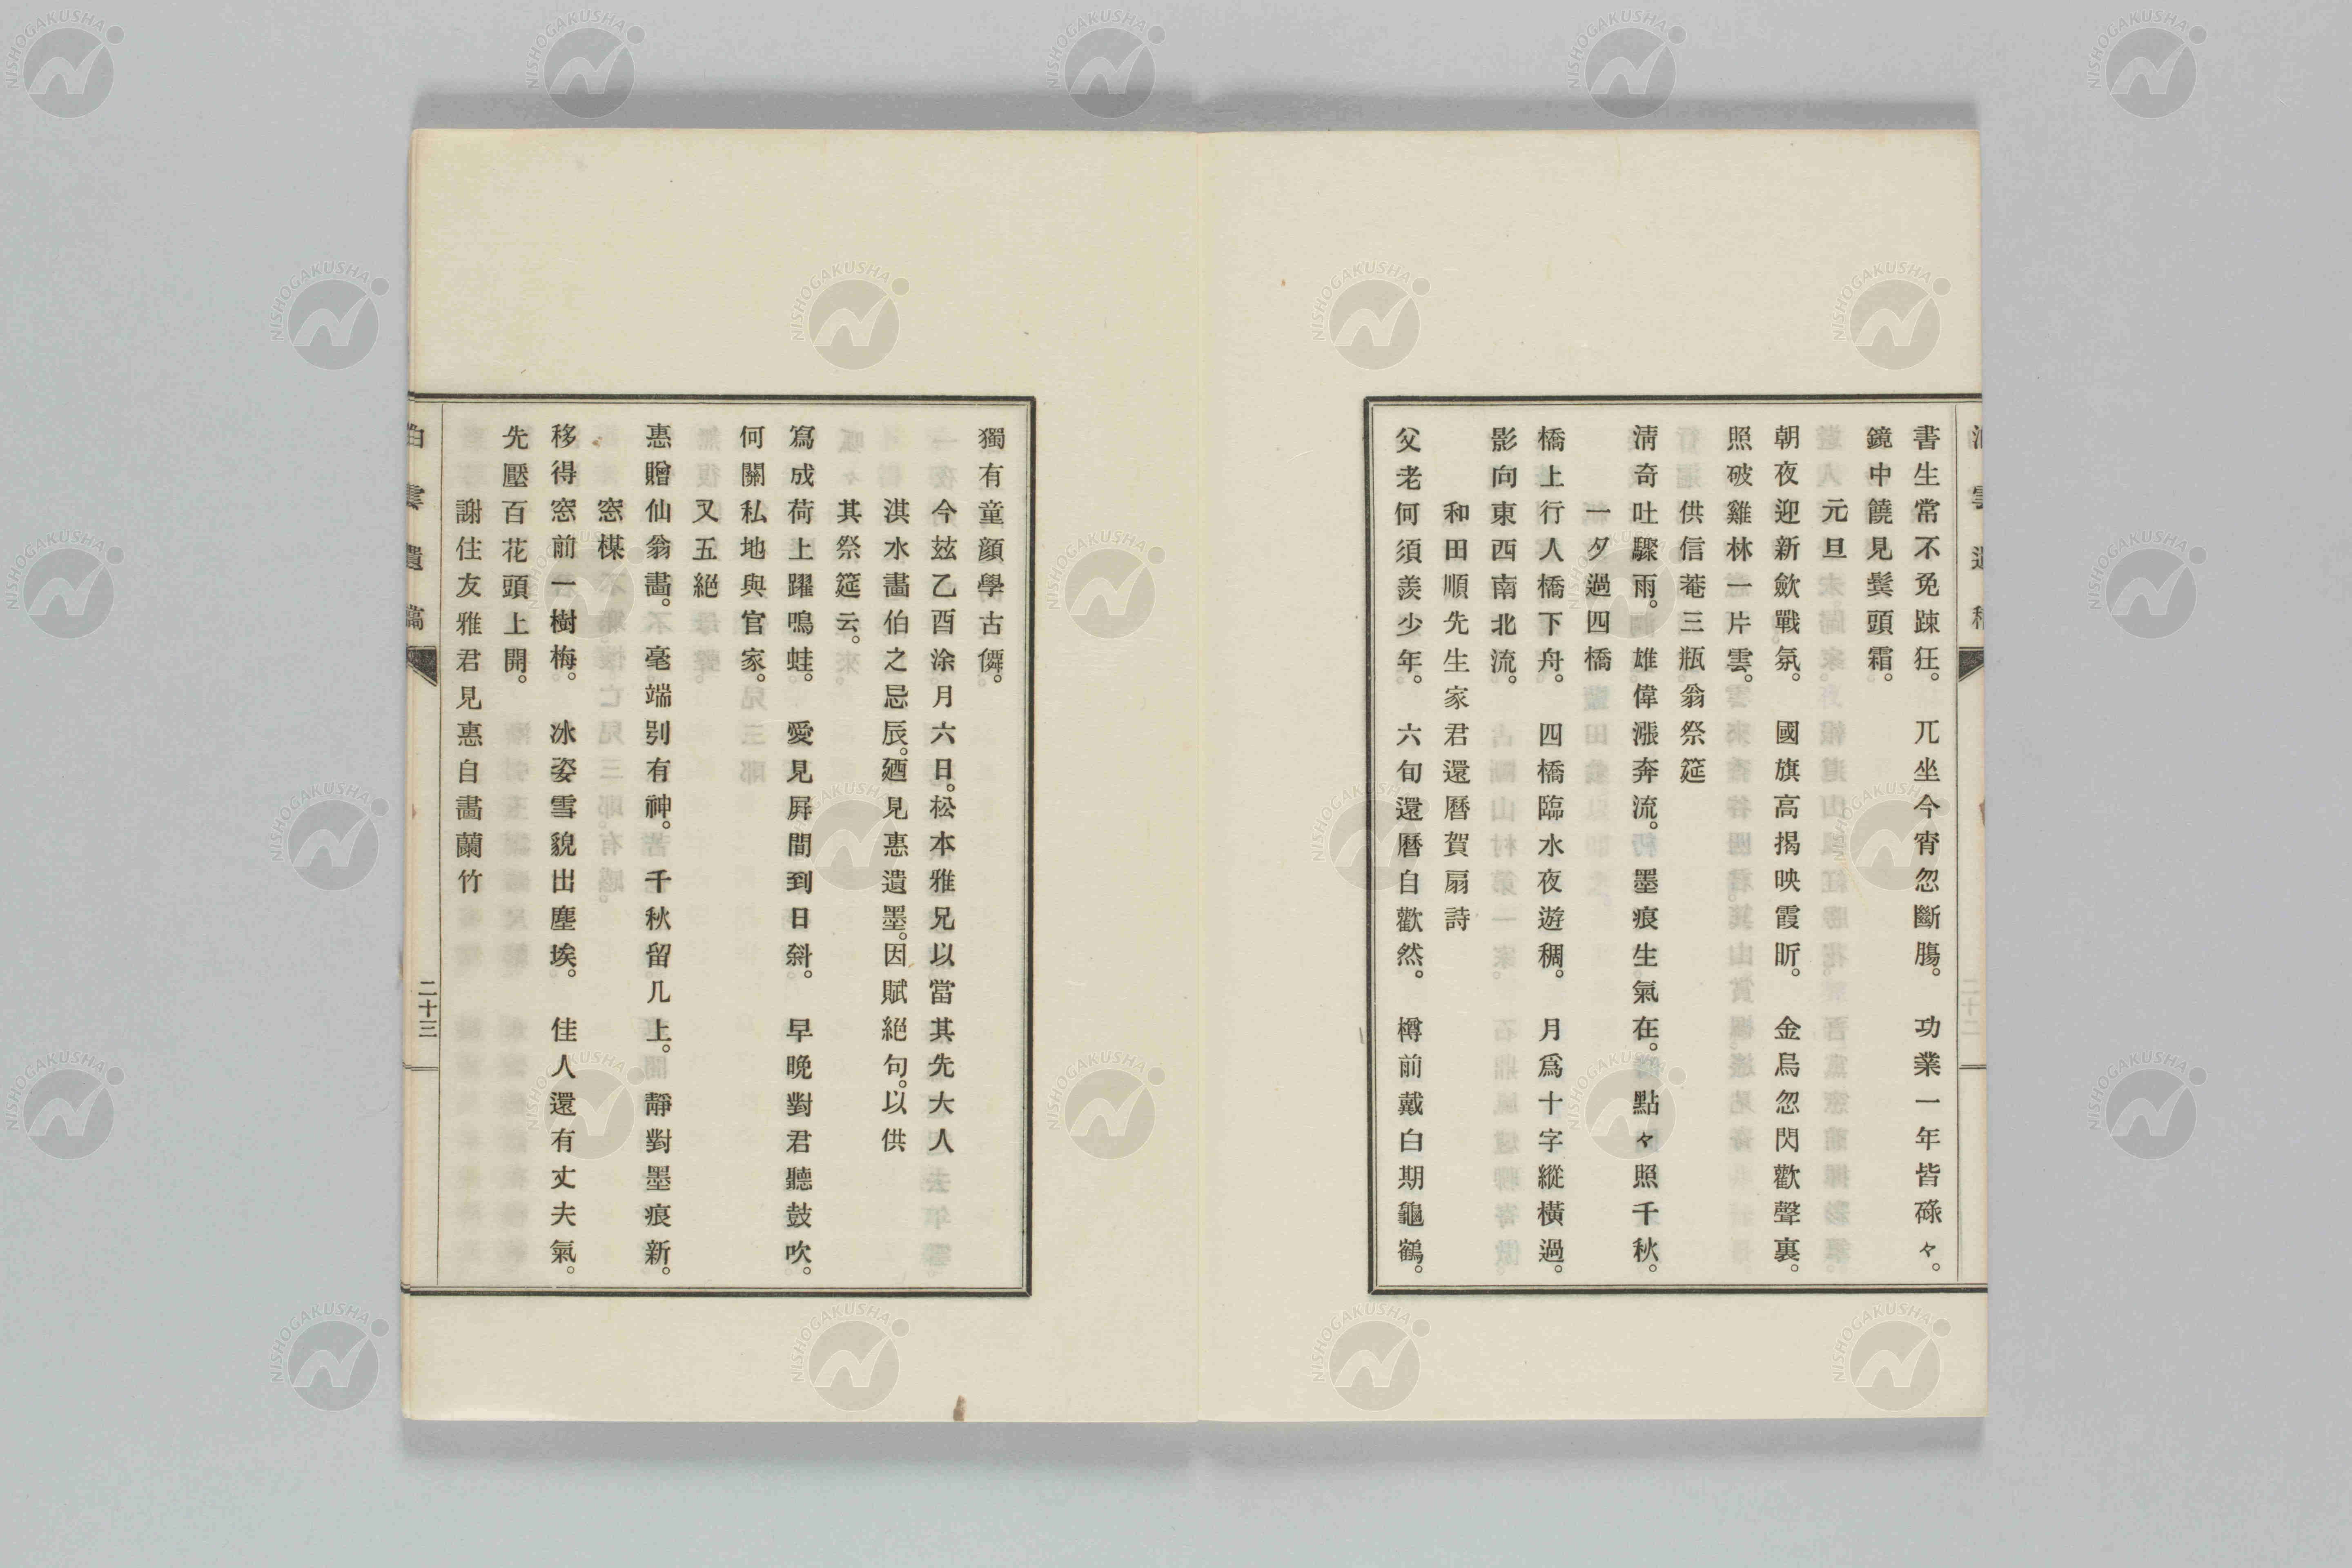 書生常不免踈狂。 兀坐今宵忽斷膓。 功業一年皆碌々。
鏡中饒見鬓頭霜。
元旦
朝夜迎新歛戰氛。 國旗高揭映霞昕。 金烏忽閃歡聲裏。
照破雞林一片雲。
供信菴三瓶翁祭筵
淸奇吐驟雨。雄偉漲奔流。墨痕生氣在。點々照千秋。
一夕過四橋
橋上行人橋下舟。 四橋臨水夜遊稠。 月爲十字縱橫過。
影向東西南北流。
和田順先生家君還曆賀扇詩
父老何須羨少年。 六旬還曆自歡然。 樽前戴白期龜鶴。
獨有童顔學古僊。
今玆乙酉涂月六日。松本雅兄以當其先大人
淇水畵伯之忌辰。廼見惠遺墨。因賦絕句。以供
其祭筵云。
寫成荷上躍鳴蛙。 愛見屛間到日斜。 早晚對君聽鼓吹。
何關私地與官家。
又五絕
惠贈仙翁畵。毫端別有神。千秋留几上。靜對墨痕新。
窓楳
移得窓前一樹梅。 冰姿雪貌出塵埃。 佳人還有丈夫氣。
先壓百花頭上開。
謝住友雅君見惠自畵蘭竹
雲遺稿
二十三
NISHOGAKUSHA